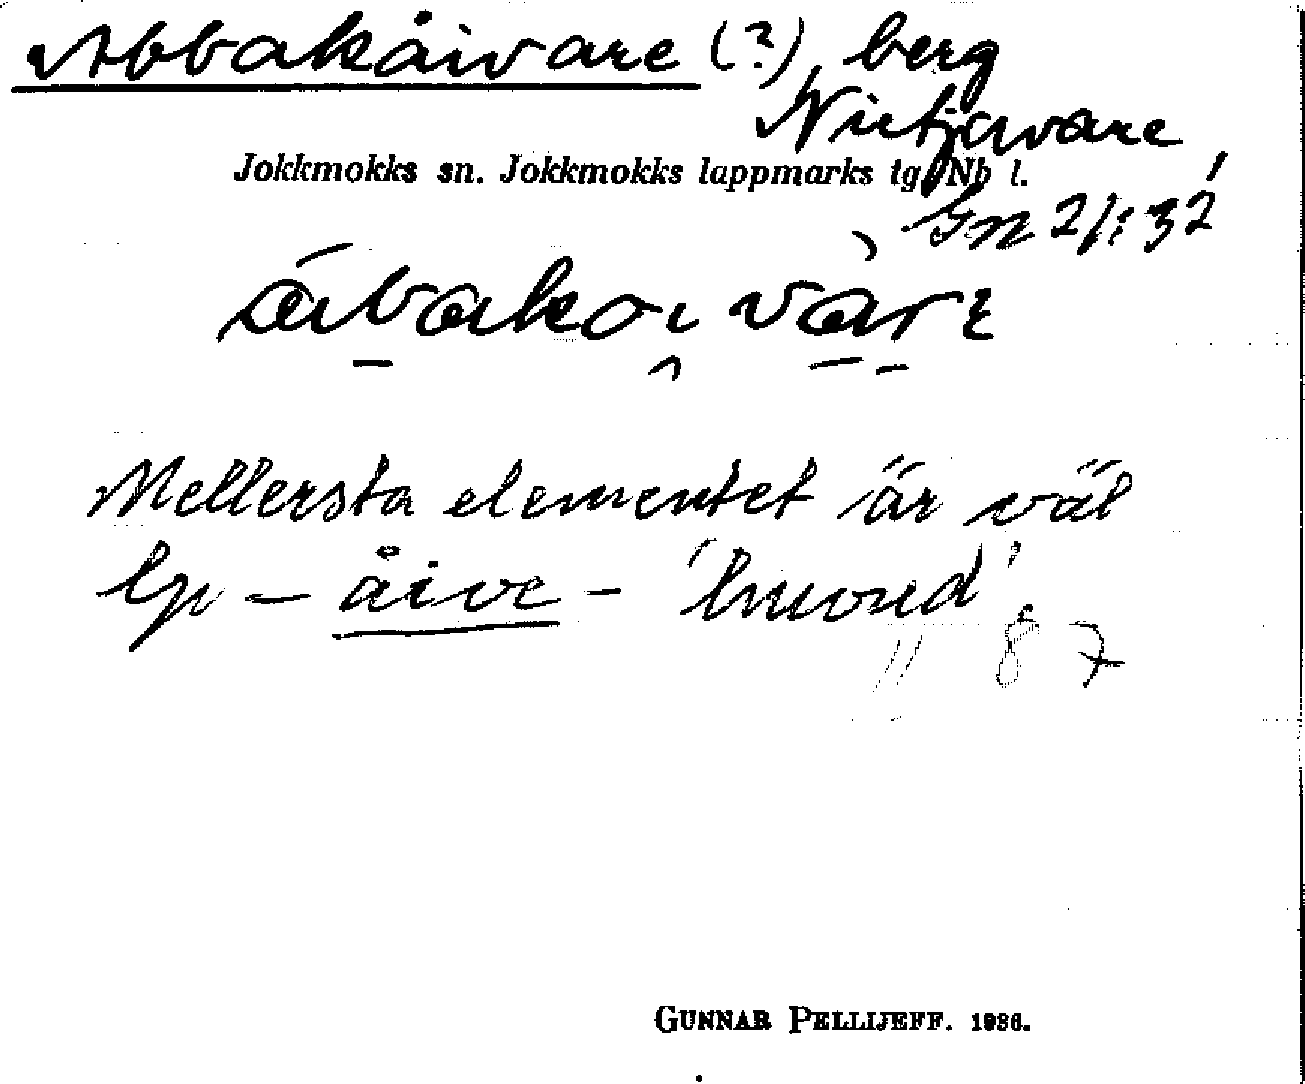 Abbakåivare (?), berg
Nietjavare,
Jokkmokks sn. Jokkmokks lappmarks tg. Nb l.
Gn 2/1 32
Mellersta elementet är väl
lp – åive – 'huvud'.
87
GUNNAR PELLIJEFF. 1936.